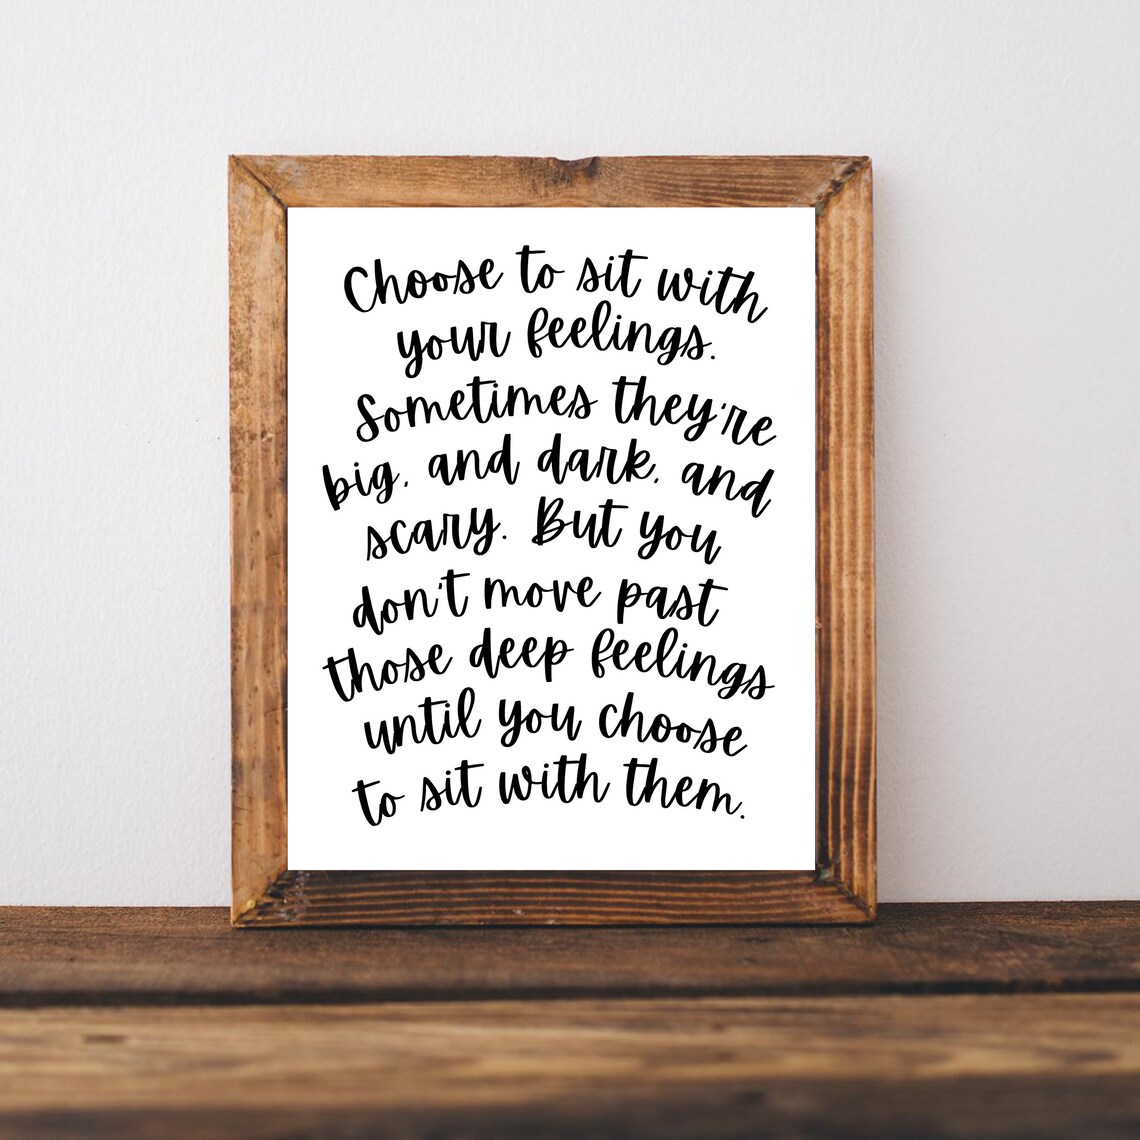 Choose to sit with
your feelings.
Sometimes they're
big, and dark, and
scary. But you
don't move past
those deep feelings
until you choose
to sit with them.